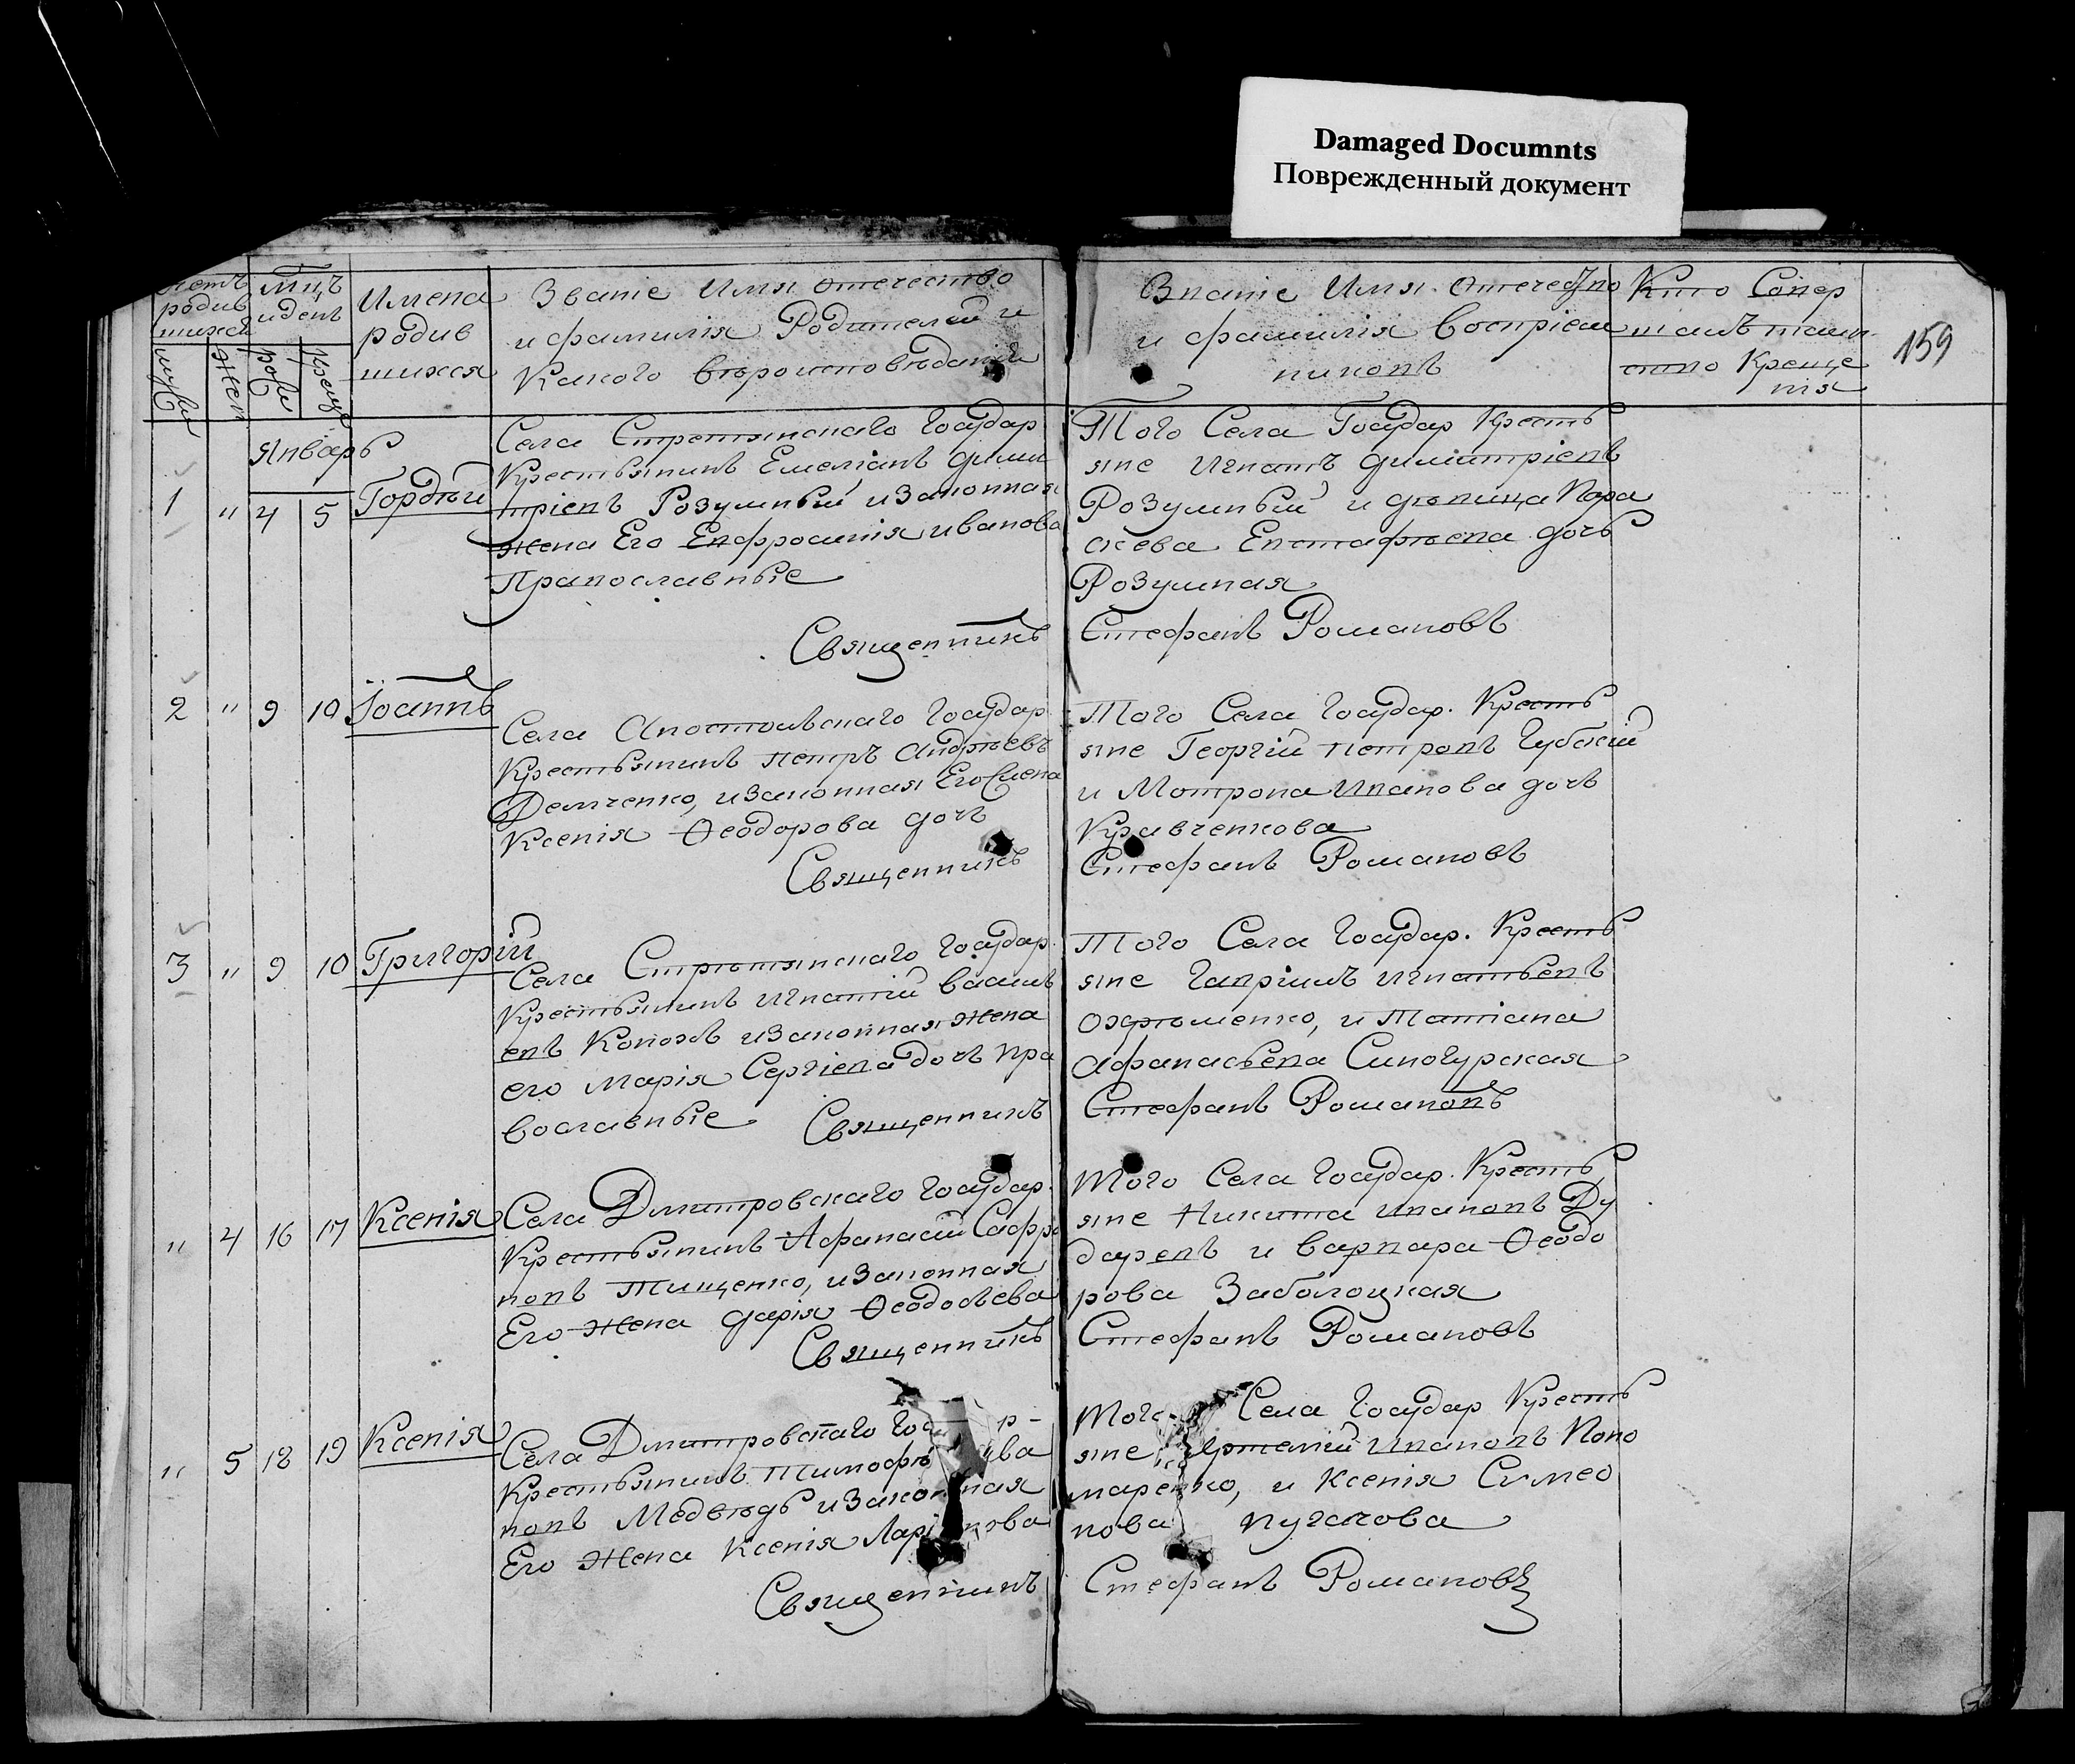 Damaged Documnts
Поврежденный документ
159
Счетъ родив шихся
Мцъ и день
Имена родив шихся
Званіе Имя отечество
и фамилія Родителей и
Какого вѣроисповѣданія
Званіе Имя. отечество
и фамилія Восприем
никовъ
Кто Совер
шалъ таин
ство Креще
нія
муж
жен
рож
крещ
Январь
1 " 4 5 Гордѣй
Села Стретинскаго Государ
Крестьянинъ Емеліанъ Дими
тріевъ Розумный и Законная
жена Его Евфросинія иванова
Православные
Священникъ
Того Села Государ Кресть
яне Игнатъ Димитріевъ
Розумный и дѣвица Пара
скева Евстафьева дочь
Розумная
Стефанъ Романовъ
2 " 9 10 Іоаннъ
Села Апостольскаго Государ
Крестьянинъ Петръ Андрѣевъ
Демченко, и Законная Его Жена
Ксенія Ѳеодорова дочь
Священникъ
Того Села Государ. Кресть
яне Георгій Петровъ Губскій
и Мотрона Иванова дочь
Кравченкова
Стефанъ Романовъ
3 " 9 10 Григорій
Села Стрѣтинскаго Государ.
Крестьянинъ Игнатій Васильъ
евъ Конохъ и Законная жена
его Марія Сергіева дочь пра
вославные Священникъ
Того Села Государ. Кресть
яне Гавріилъ Игнатьевъ
Охрѣменко, и Татіана
Афанасьева Синогурская
Стефанъ Романовъ
" 4 16 17 Ксенія
Села Дмитровскаго Государ.
Крестьянинъ Афанасій Сафро
новъ Тищенко, и Законная
Его жена Дарія Ѳеодосѣева
Священникъ
Того Села Государ. Кресть
яне Никита Ивановъ Ду
даревъ и Варвара Ѳеодо
рова Заболоцкая
Стефанъ Романовъ
" 5 18 19 Ксенія
Села Дмитровскаго Гос р-
Крестьянинъ Тимофѣ ива
новъ Медвѣдь и Законная
Его жена Ксенія Ларі нова
Священникъ
Того Села Государ Кресть
яне Артемій Ивановъ Поно
маренко, и Ксенія Симео
нова Пугачова
Стефанъ Романовъ